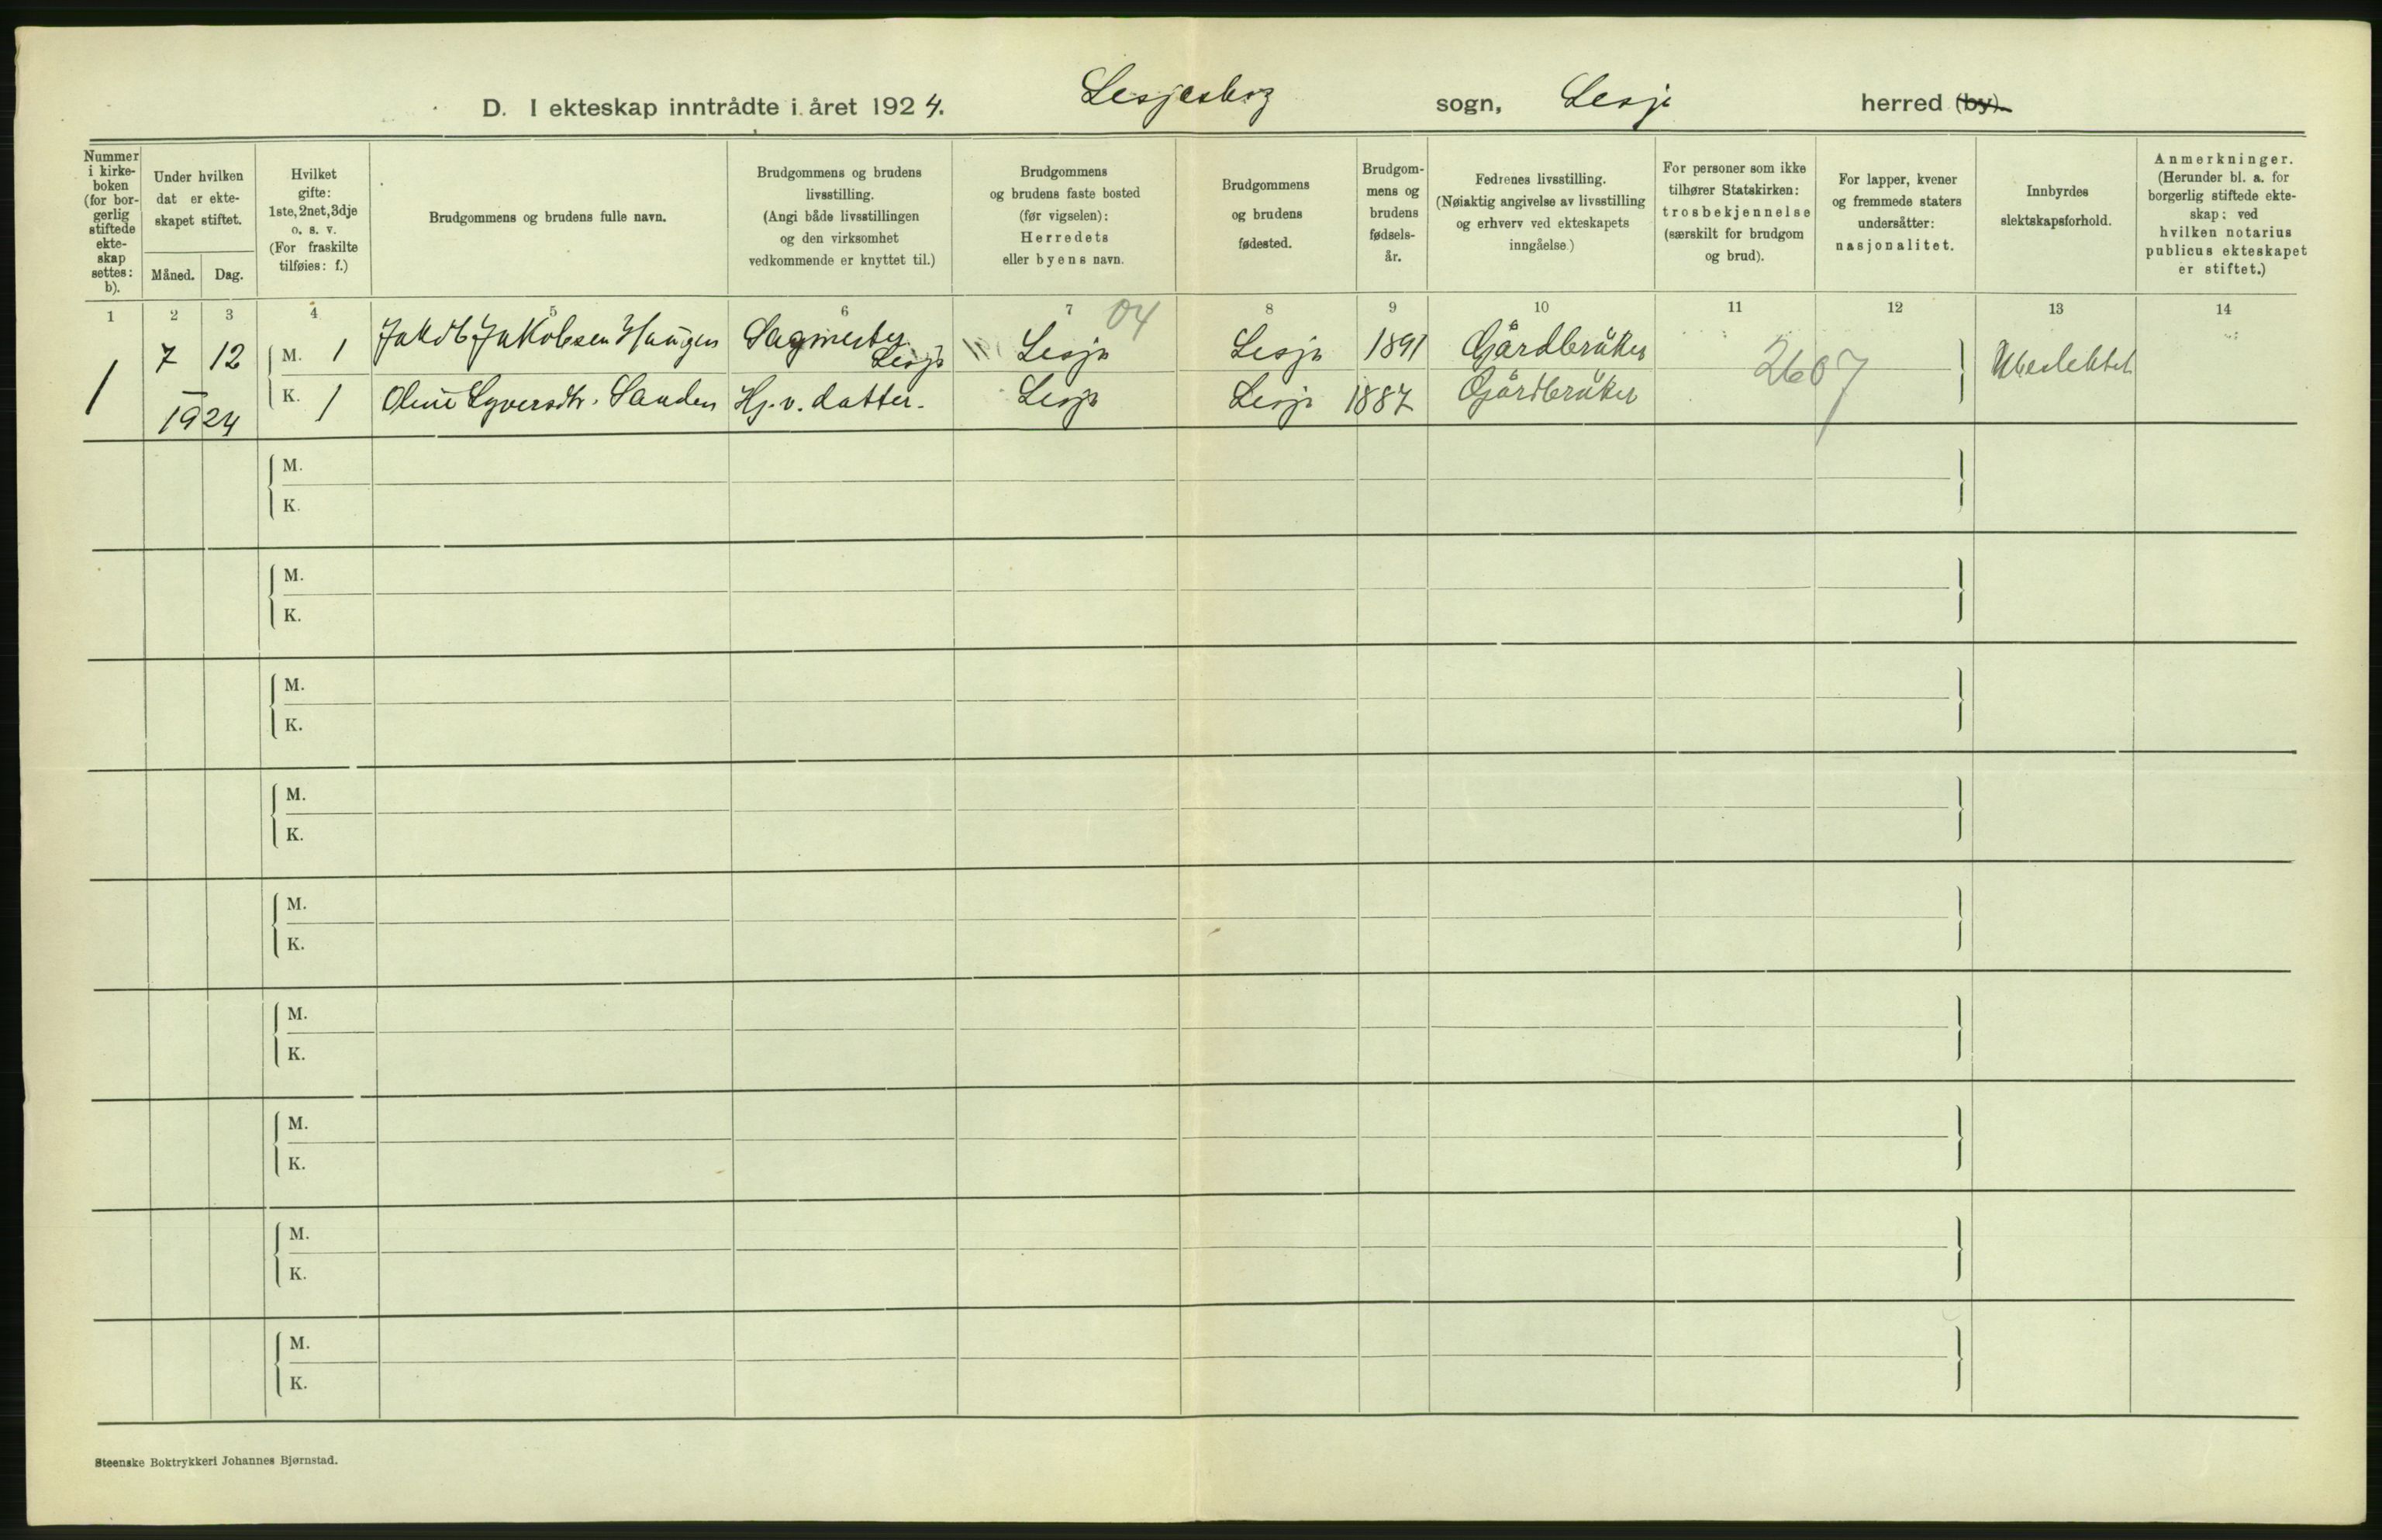 D. I ekteskap inntrådte i året 1924. Lesjeskog sogn, Lesje herred (by).
Nummer i kirkeboken (for borgerlig stiftede ekteskap settes: b).
Under hvilken dat er ekteskapet stiftet.
Måned. Dag.
Hvilket gifte: 1ste, 2net, 3dje o. s. v. (For fraskilte tilføies: f.)
Brudgommens og brudens fulle navn.
Brudgommens og brudens livsstilling. (Angi både livsstillingen og den virksomhet vedkommende er knyttet til.)
Brudgommens og brudens faste bosted (før vigselen): Herredets eller byens navn.
Brudgommens og brudens fødested.
Brudgommens og brudens fødselsår.
Fedrenes livsstilling. (Nøiaktig angivelse av livsstilling og erhverv ved ekteskapets inngåelse.)
For personer som ikke tilhører Statskirken: trosbekjennelse (særskilt for brudgom og brud).
For lapper, kvener og fremmede staters undersåtter: nasjonalitet.
Innbyrdes slektskapsforhold.
Anmerkninger. (Herunder bl. a. for borgerlig stiftede ekteskap: ved hvilken notarius publicus ekteskapet er stiftet.)
1 2 3 4 5 6 7 8 9 10 11 12 13 14
04
1 7 12 M. 1 Jakob Jakobsen Haugen Sagmester Lesje Lesje Lesje 1891 Gårdbruker 2607 Ubeslektet
1924 K. 1 Oline Syversdtr. Sanden Hj. v. datter. Lesje Lesje 1887 Gårdbruker
M.
K.
M.
K.
M.
K.
M.
K.
M.
K.
M.
K.
M.
K.
M.
K.
M.
K.
Steenske Boktrykkeri Johannes Bjørnstad.